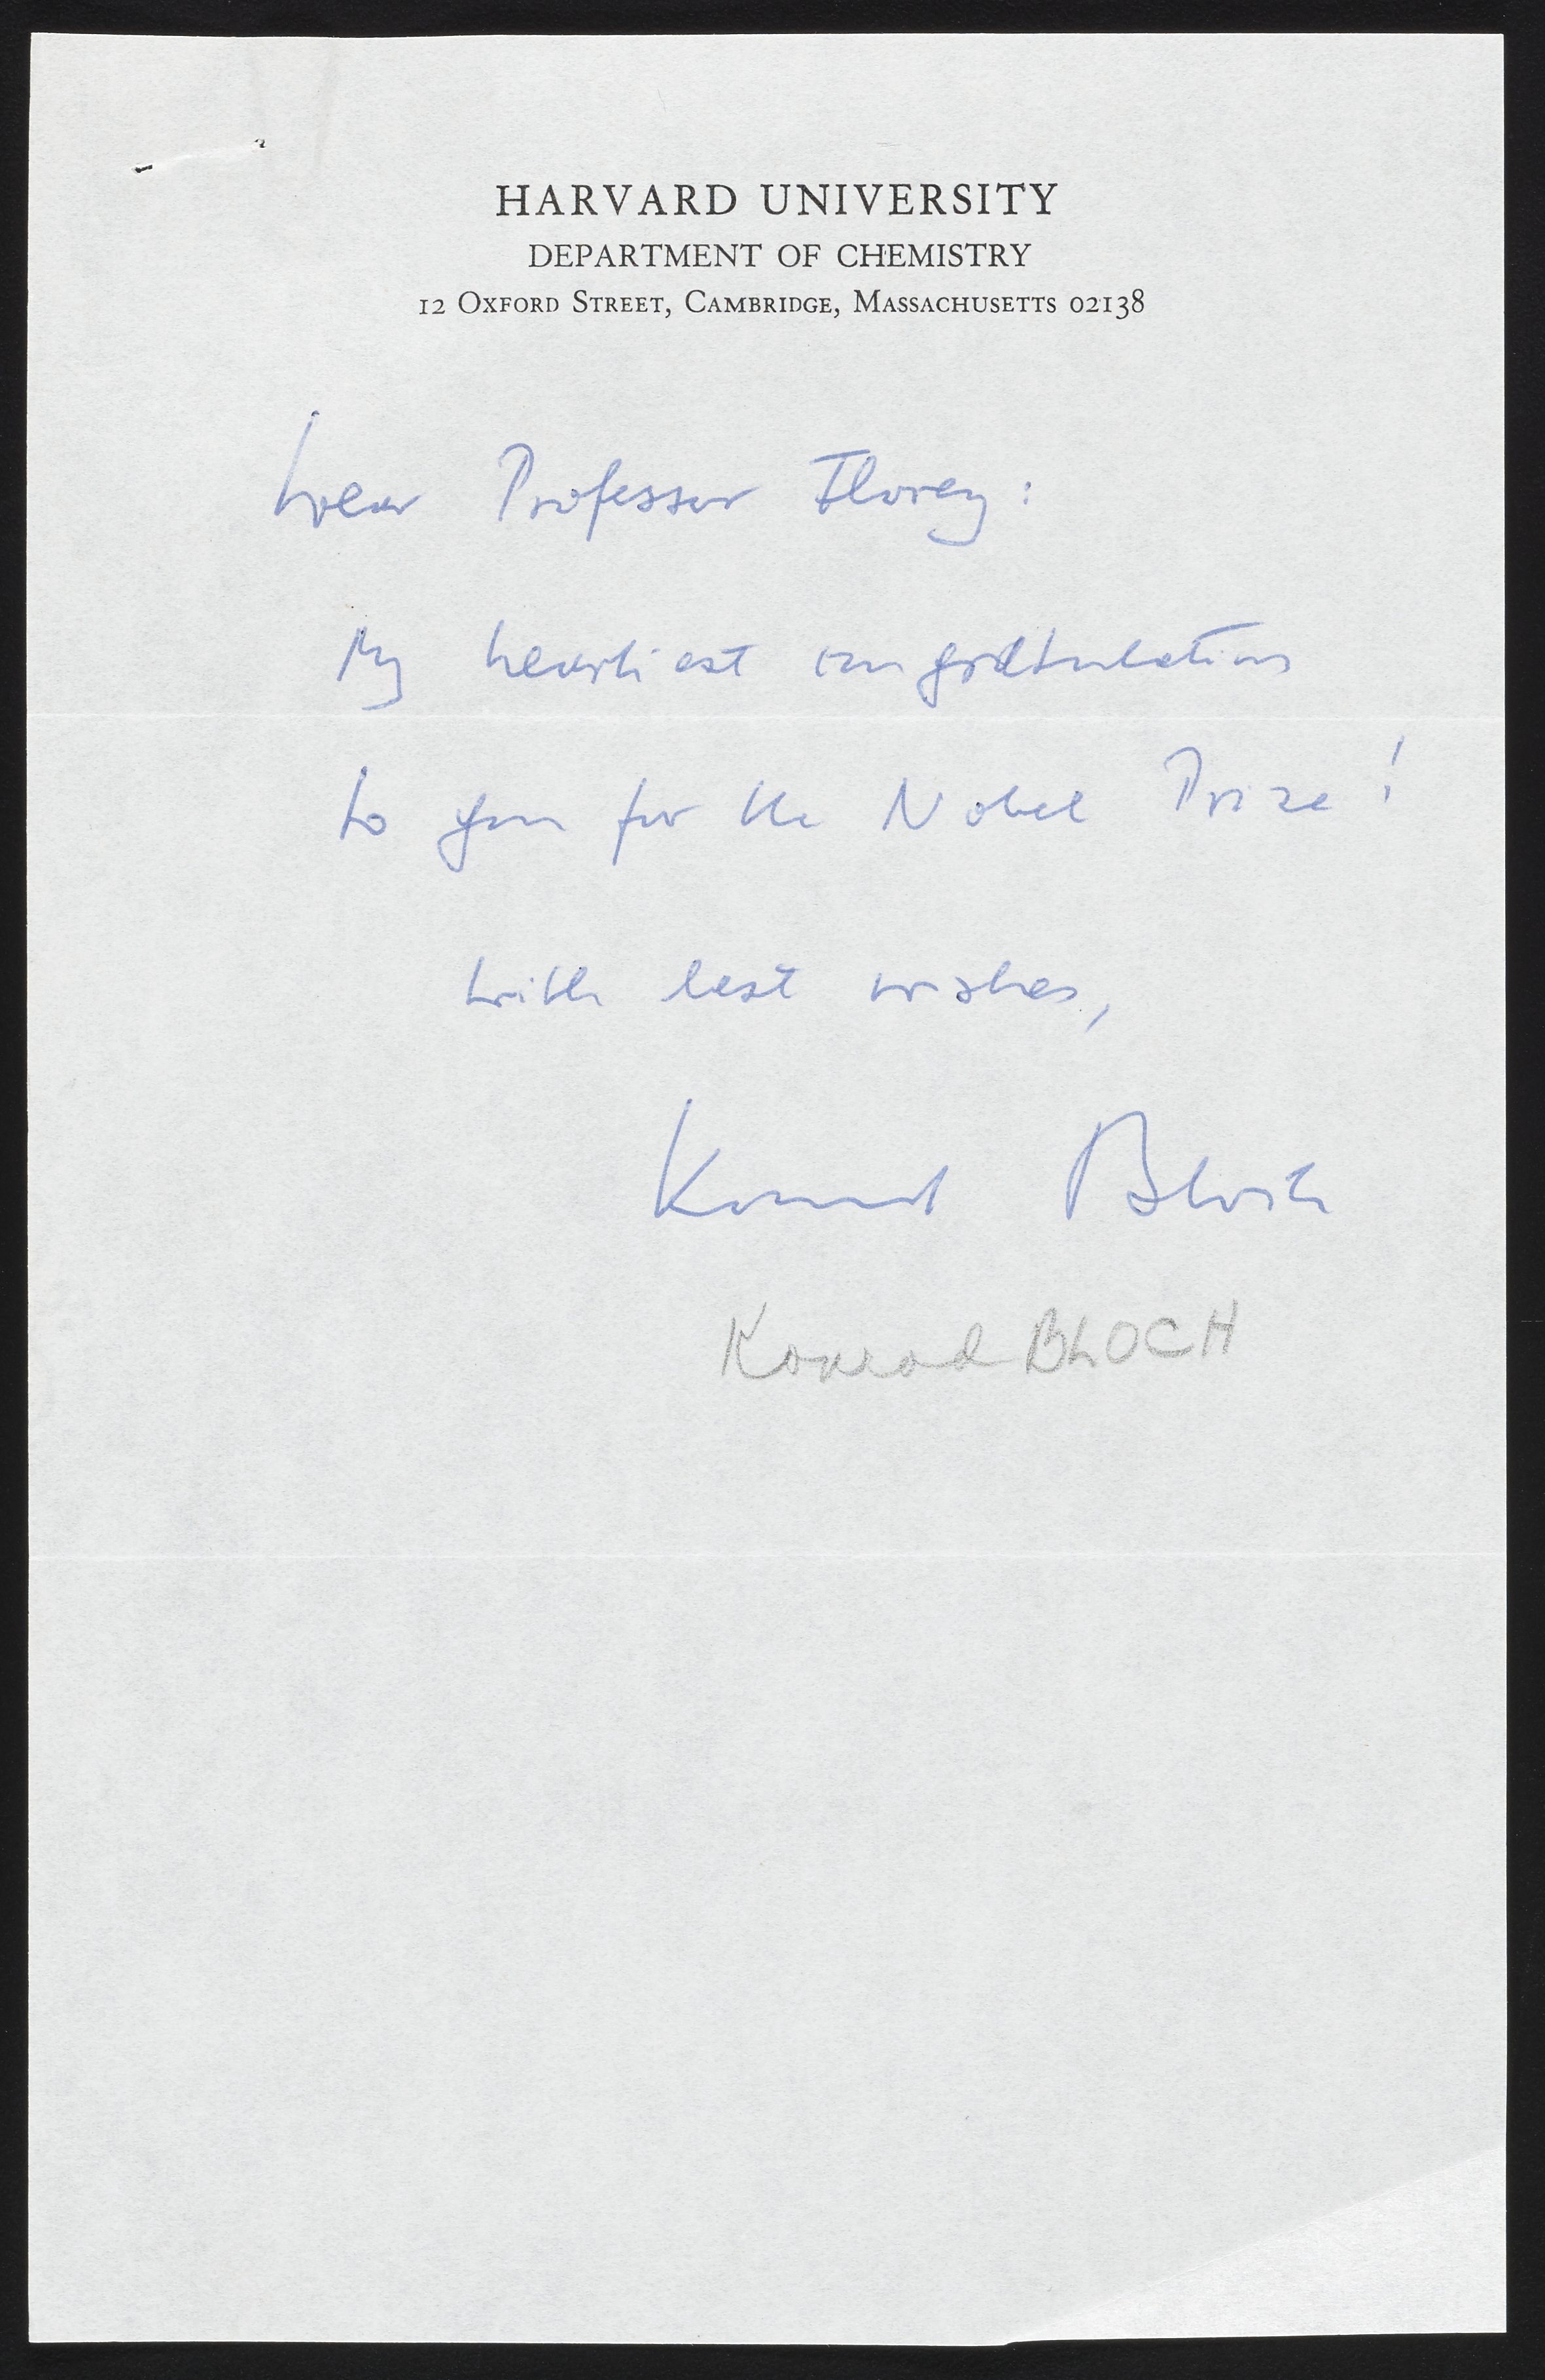 HARVARD UNIVERSITY
DEPARTMENT OF CHEMISTRY
12 OXFORD STREET, CAMBRIDGE, MASSACHUSETTS 02138
Dear Professor Florey:
My heartiest congratulations
to you for the Nobel Prize!
With best wishes,
Konrad Bloch
Konrad BLOCH